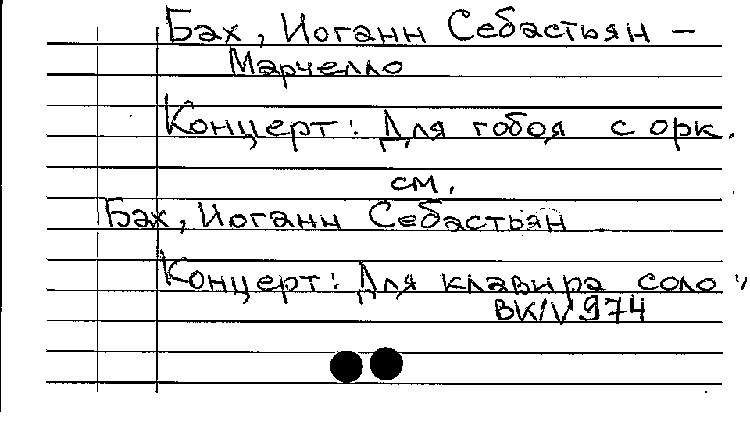 Бах, Иоганн Себастьян –
Марчелло
Концерт: Для гобоя с орк.
см.
Бах, Иоганн Себастьян
Концерт: Для клавира соло,
BWV 974